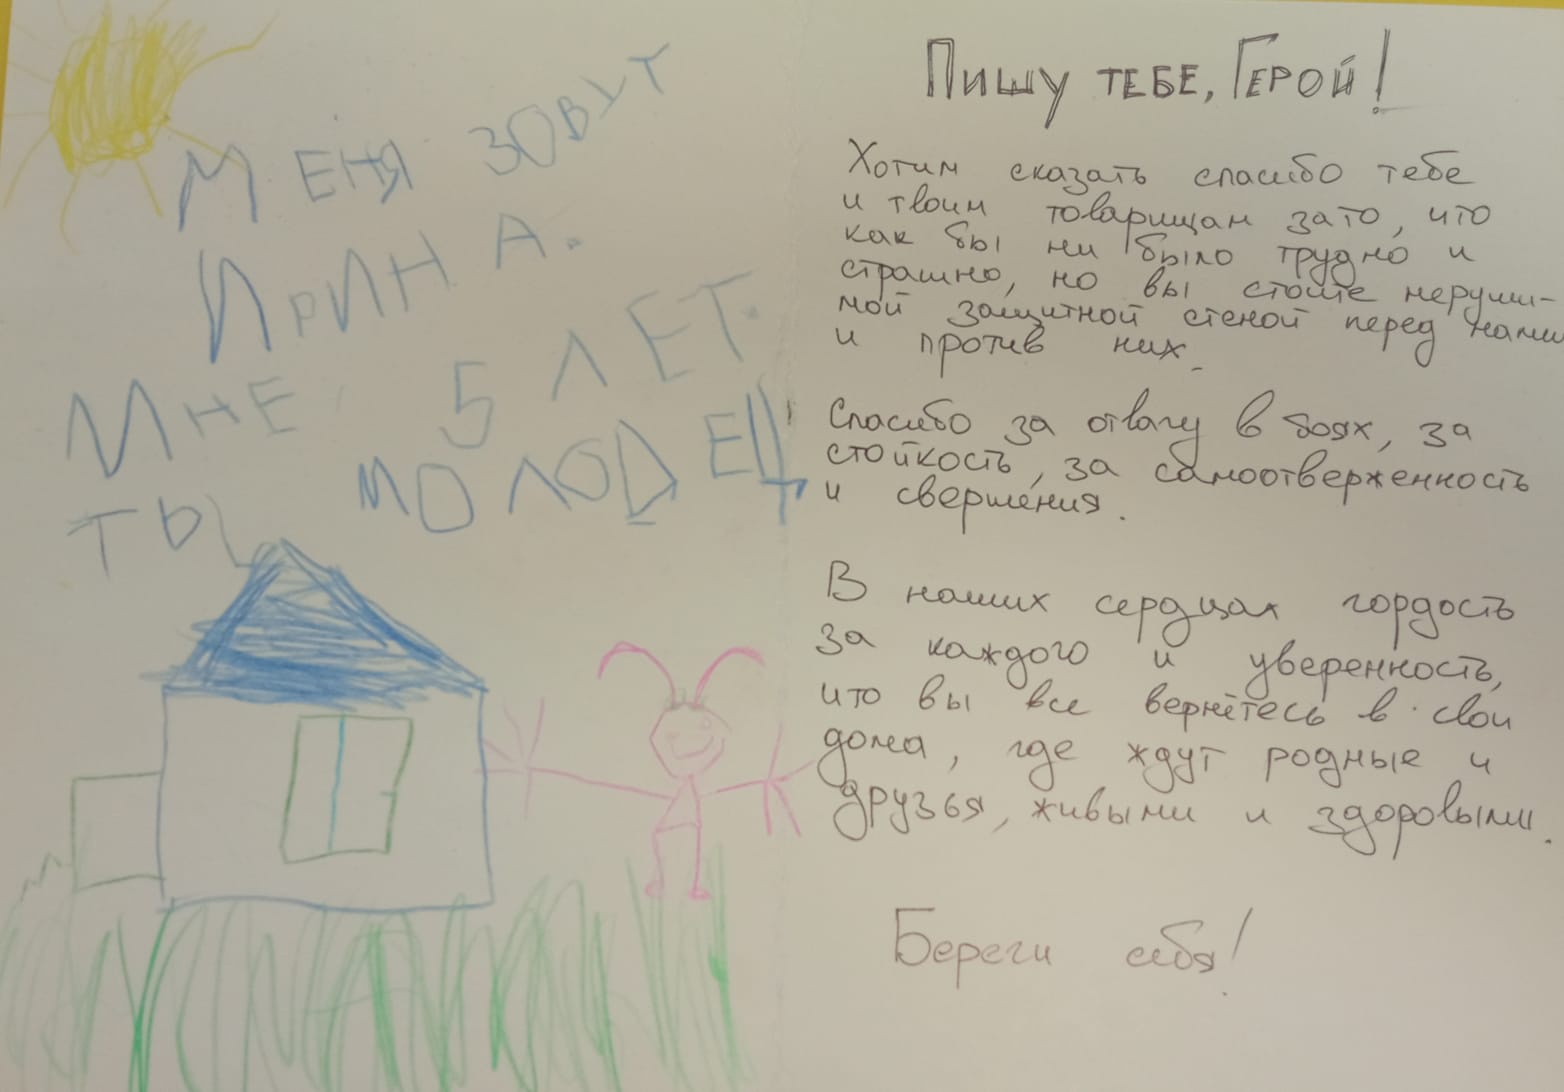 Меня зовут
Ирина.
Мне 5 лет.
Ты молодец!
Пишу тебе, Герой!
Хотим сказать спасибо тебе
и твоим товарищам зато, что
как бы ни было трудно и
страшно, но вы стоите неруши-
мой защитной стеной перед нами
и против них.
Спасибо за отвагу в боях, за
стойкость, за самоотверженность
и свершения.
В наших сердцах гордость
за каждого и уверенность,
что вы все вернётесь в свои
дома, где ждут родные и
друзья, живыми и здоровыми.
Береги себя!